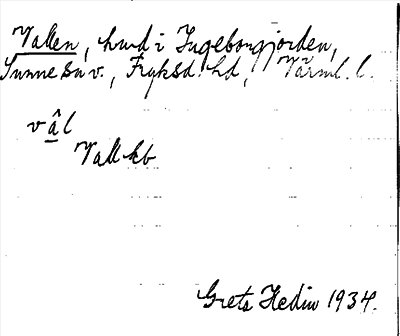 Vallen, hmd i Ingeborgjorden,
Sunne sn v., Fryksd. hd, Värml. l.
vâl
Vall kb
Greta Hedin 1934.